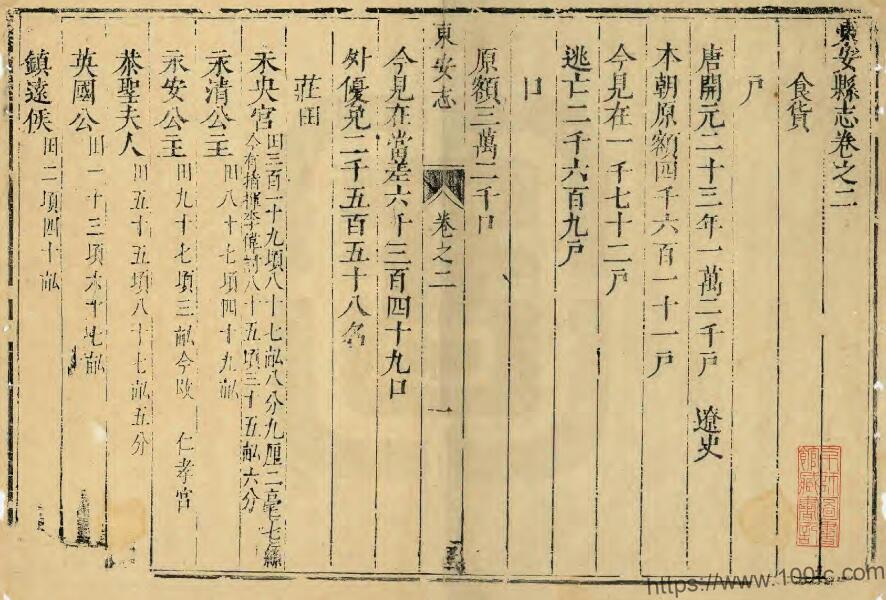 東安縣志卷之二
食貨
戶
唐開元二十三年一萬二千戶 遼史
本朝原額四千六百一十一戶
今見在一千七十二戶
逃亡二千六百九戶
口
原額三萬二千口
東安志 卷之二 一
今見在當差六千三百四十九口
外優免二千五百五十八名
莊田
未央宮 田三百一十九頃八十七畝八分九厘二毫七絲
今有指揮李偉討八十五頃三十五畝六分
永清公主 田八十七頃四十九畝
永安公主 田九十七頃三畝今改 仁孝宮
恭聖夫人 田五十五頃八十七畝五分
英國公 田一十三頃六十七畝
鎮遠侯 田二頃四十畝
京師圖書
館藏書記
https://www.100fc.com